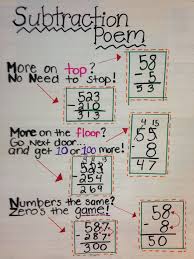 Subtraction
Poem
More on top?
No Need to stop!
58
- 5
53
523
- 210
313
More on the floor?
Go Next door...
and get 10 or 100 more!
4 15
55
- 8
47
523
- 254
269
Numbers the same?
Zero's the game!
58
- 8
50
587
- 287
300